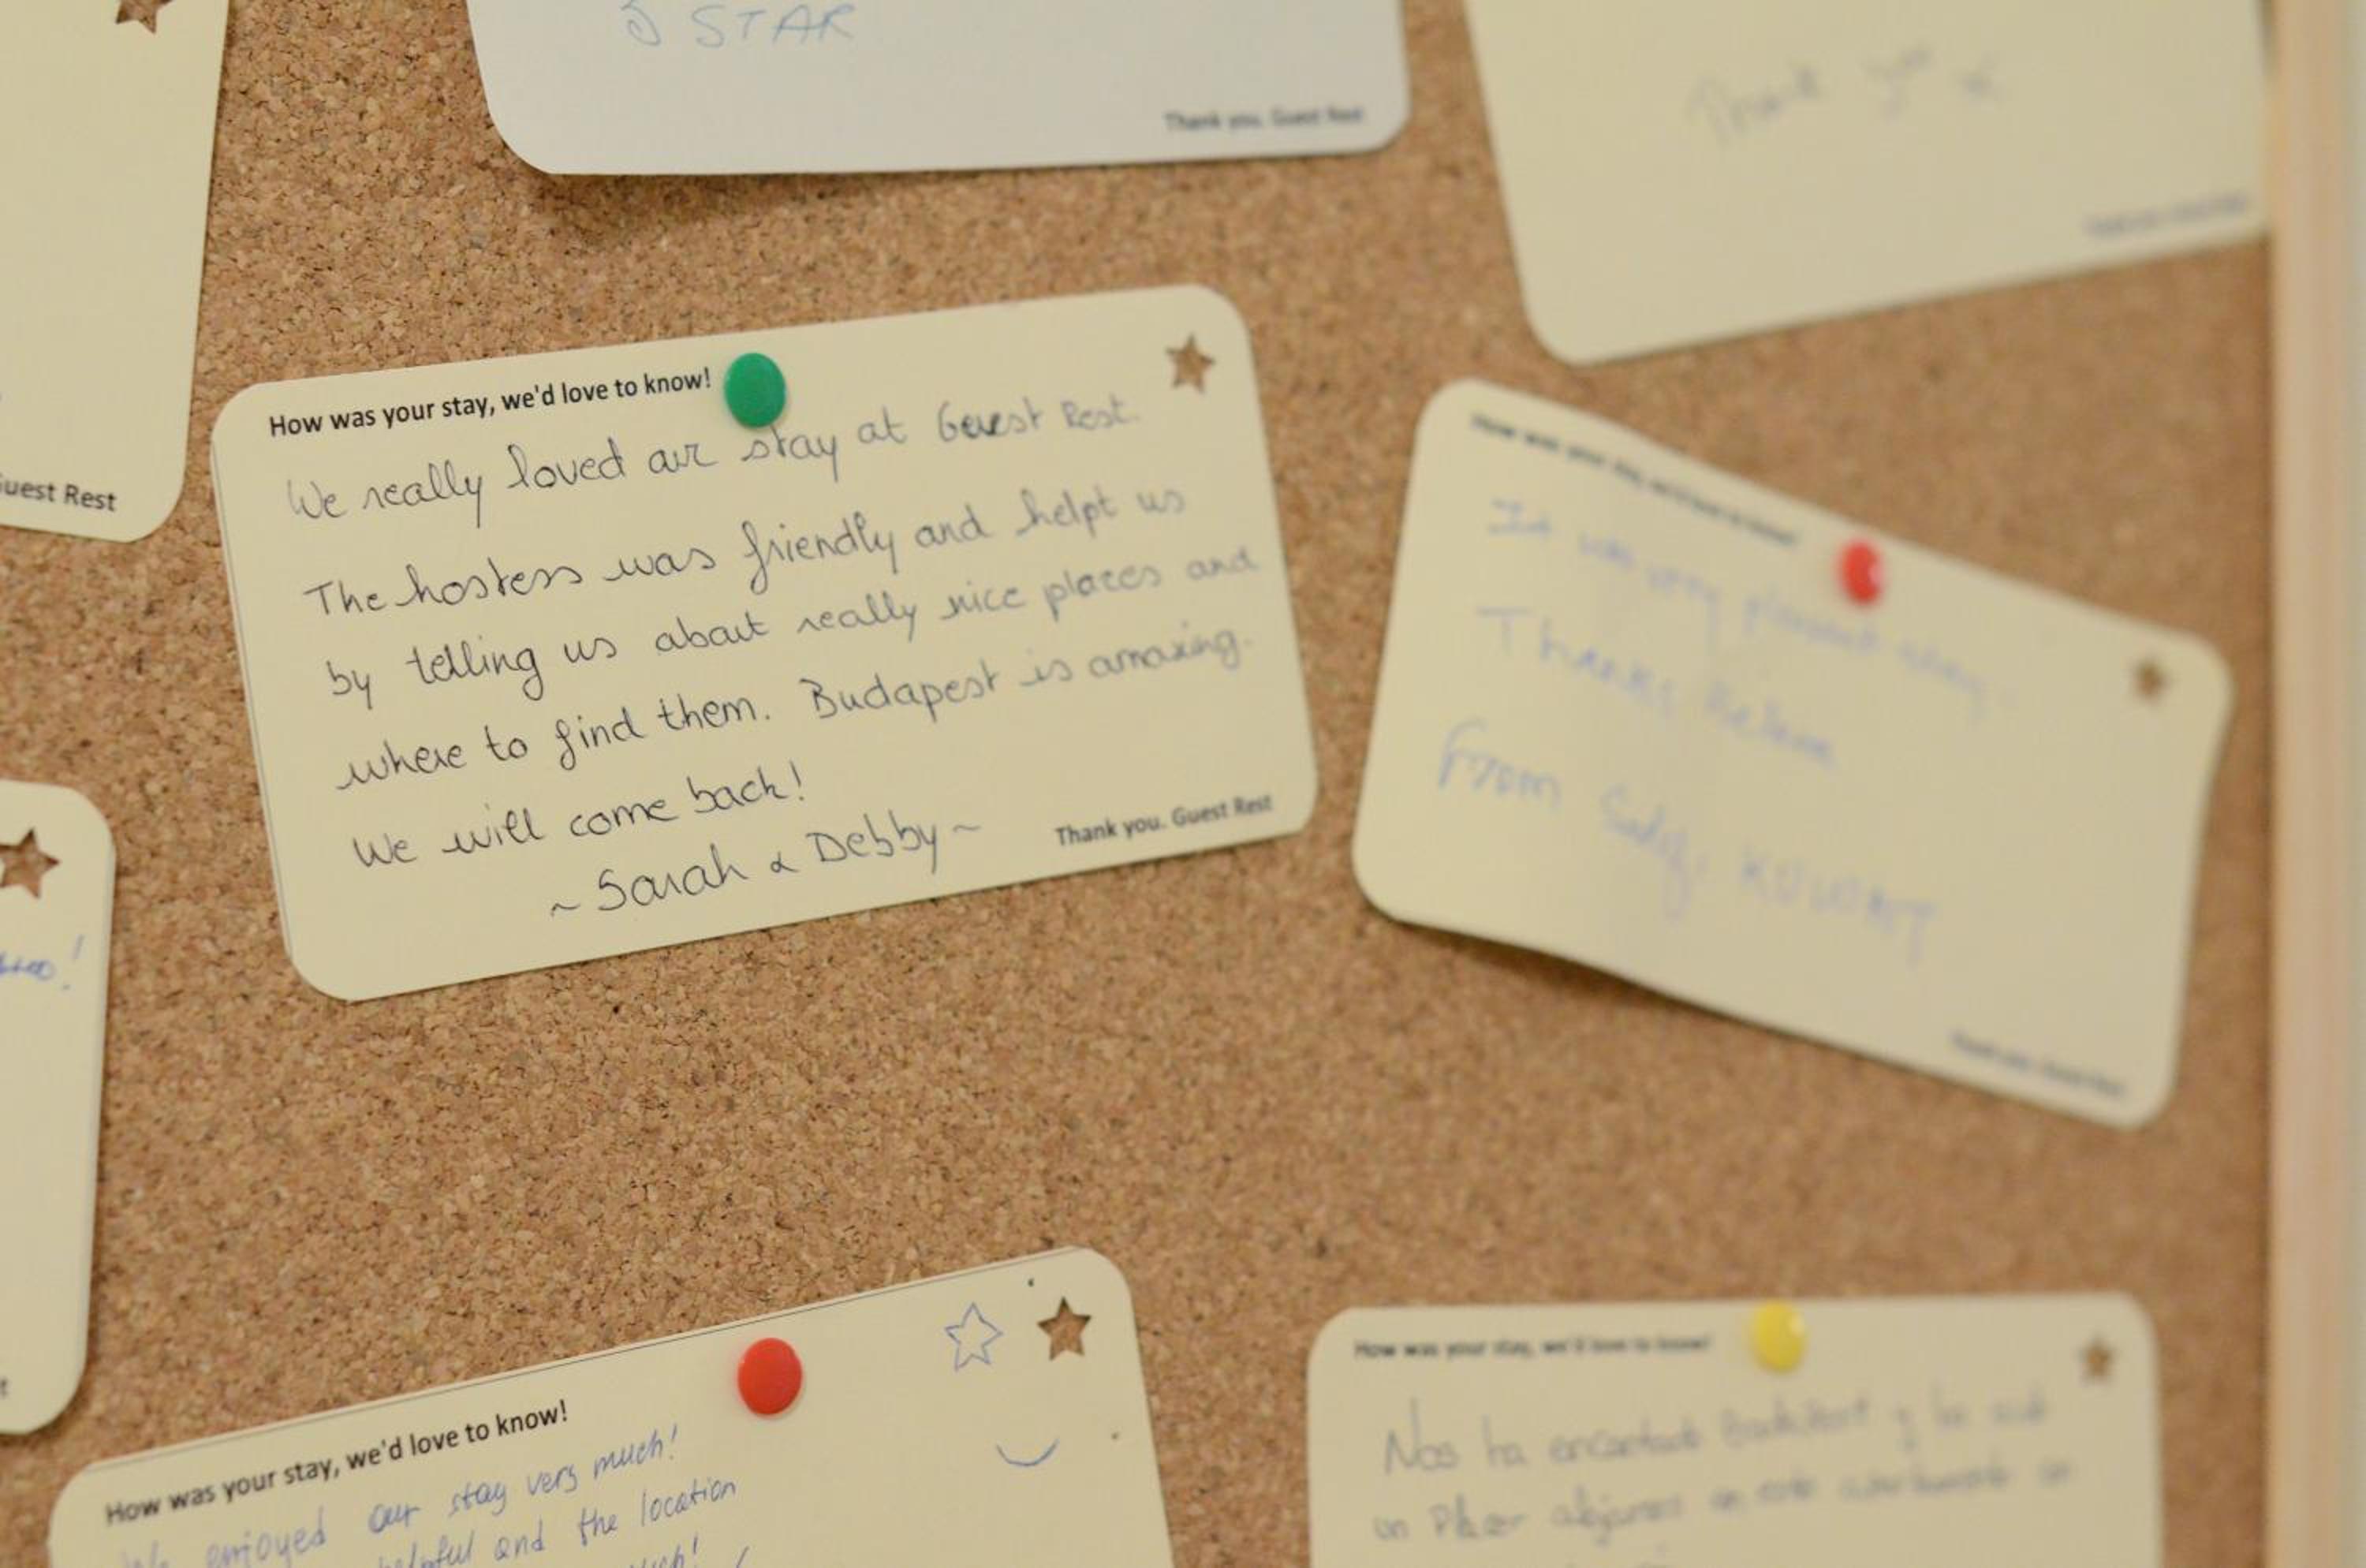 5 STAR
Thank you. Guest Rest
Thank you x
Guest Rest
How was your stay, we'd love to know!
We really loved our stay at Guest Rest.
The hostess was friendly and helpt us
by telling us about really nice places and
where to find them. Budapest is amazing.
We will come back!
~ Sarah & Debby ~
Thank you. Guest Rest
How was your stay, we'd love to know!
It was very pleasant stay.
Thanks
From KUWAIT
Thank you. Guest Rest
How was your stay, we'd love to know!
We enjoyed our stay very much!
helpful and the location
much!
How was your stay, we'd love to know!
Nos ha encantado y ha sido
un placer alojarnos en este